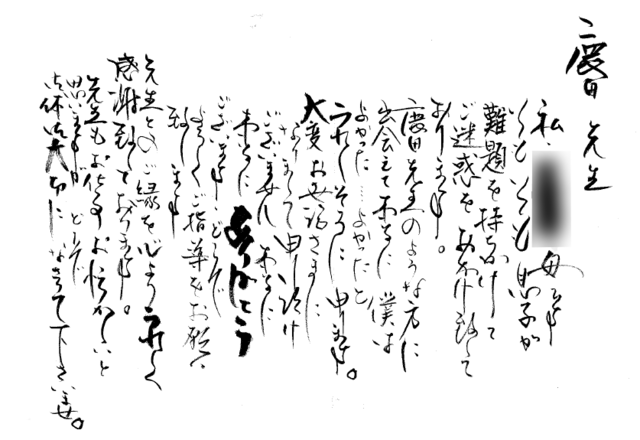 二慶田 先生
私、 母です
いつもいつも息子が
難題を持ちかけて
ご迷惑をおかけ致して
おります。
二慶田先生のような方に
出会えて本当に僕は
よかった…よかったと
うれしそうに申します。
大変お世話さまに
なりまして申し訳
ございません 本当に
本当に ありがとう
ございます どうぞ
よろしくご指導をお願い
致します
先生とのご縁を心よりうれしく
感謝致しております。
先生もお仕事お忙がしいと
思いますが どうぞ
お体御大切になさって下さいませ。